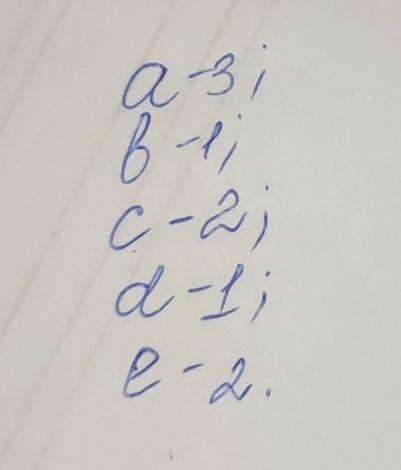 a-3;
b-1;
c-2;
d-1;
e-2.